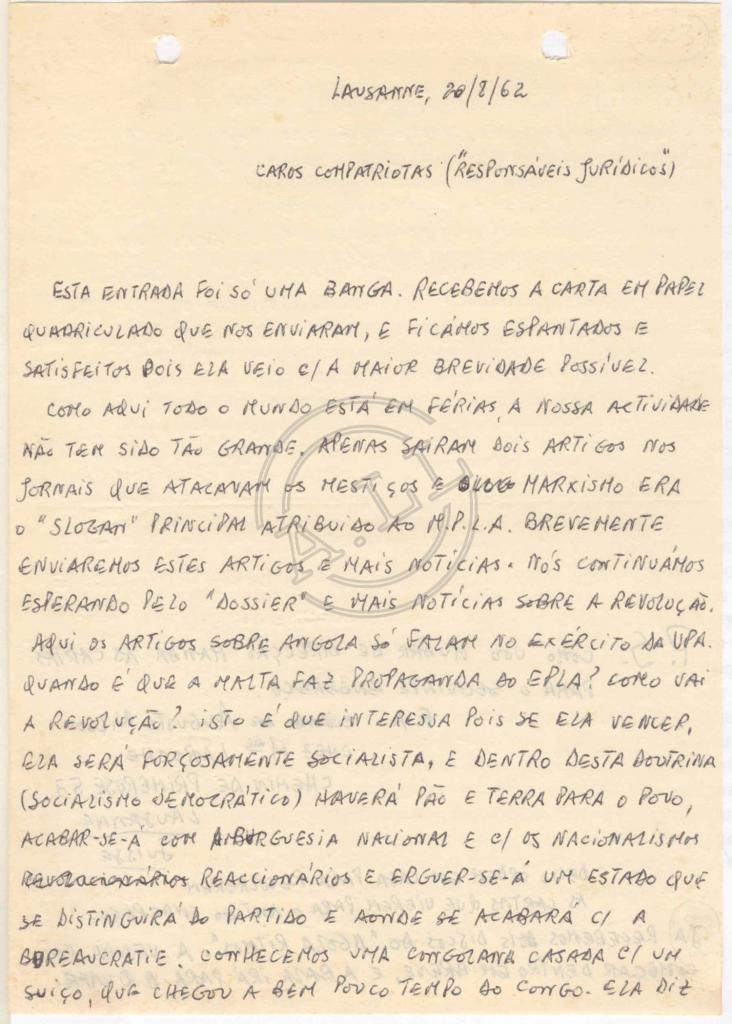 LAUSANNE, 20/8/62
CAROS COMPATRIOTAS ("RESPONSÁVEIS JURÍDICOS")
ESTA ENTRADA FOI SÓ UMA BANGA. RECEBEMOS A CARTA EM PAPEL
QUADRICULADO QUE NOS ENVIARAM, E FICÁMOS ESPANTADOS E
SATISFEITOS POIS ELA VEIO C/ A MAIOR BREVIDADE POSSÍVEL.
COMO AQUI TODO O MUNDO ESTÁ EM FÉRIAS, A NOSSA ACTIVIDADE
NÃO TEM SIDO TÃO GRANDE. APENAS SAÍRAM DOIS ARTIGOS NOS
JORNAIS QUE ATACAVAM OS MESTIÇOS E MARXISMO ERA
O "SLOGAN" PRINCIPAL ATRIBUIDO AO M.P.L.A. BREVEMENTE
ENVIAREMOS ESTES ARTIGOS E MAIS NOTÍCIAS. NÓS CONTINUÁMOS
ESPERANDO PELO "DOSSIER" E MAIS NOTÍCIAS SOBRE A REVOLUÇÃO.
AQUI OS ARTIGOS SOBRE ANGOLA SÓ FALAM NO EXÉRCITO DA UPA.
QUANDO É QUE A MALTA FAZ PROPAGANDA DO EPLA? COMO VAI
A REVOLUÇÃO? ISTO É QUE INTERESSA POIS SE ELA VENCER,
ELA SERÁ FORÇOSAMENTE SOCIALISTA, E DENTRO DESTA DOUTRINA
(SOCIALISMO DEMOCRÁTICO) HAVERÁ PÃO E TERRA PARA O POVO,
ACABAR-SE-Á COM A BURGUESIA NACIONAL E C/ OS NACIONALISMOS
REVOLUCIONÁRIOS REACCIONÁRIOS E ERGUER-SE-Á UM ESTADO QUE
SE DISTINGUIRÁ DO PARTIDO E AONDE SE ACABARÁ C/ A
BUREAUCRATIE. CONHECEMOS UMA CONGOLANA CASADA C/ UM
SUIÇO, QUE CHEGOU A BEM POUCO TEMPO DO CONGO. ELA DIZ